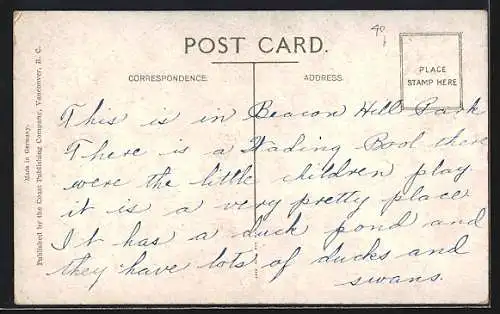 40
POST CARD.
CORRESPONDENCE.
ADDRESS.
PLACE
STAMP HERE
Published by the Coast Publishing Company, Vancouver, B. C.
Made in Germany.
This is in Beacon Hill Park
There is a Wading Pool there
were the little children play.
it is a very pretty place
It has a duck pond and
they have lots of ducks and
swans.